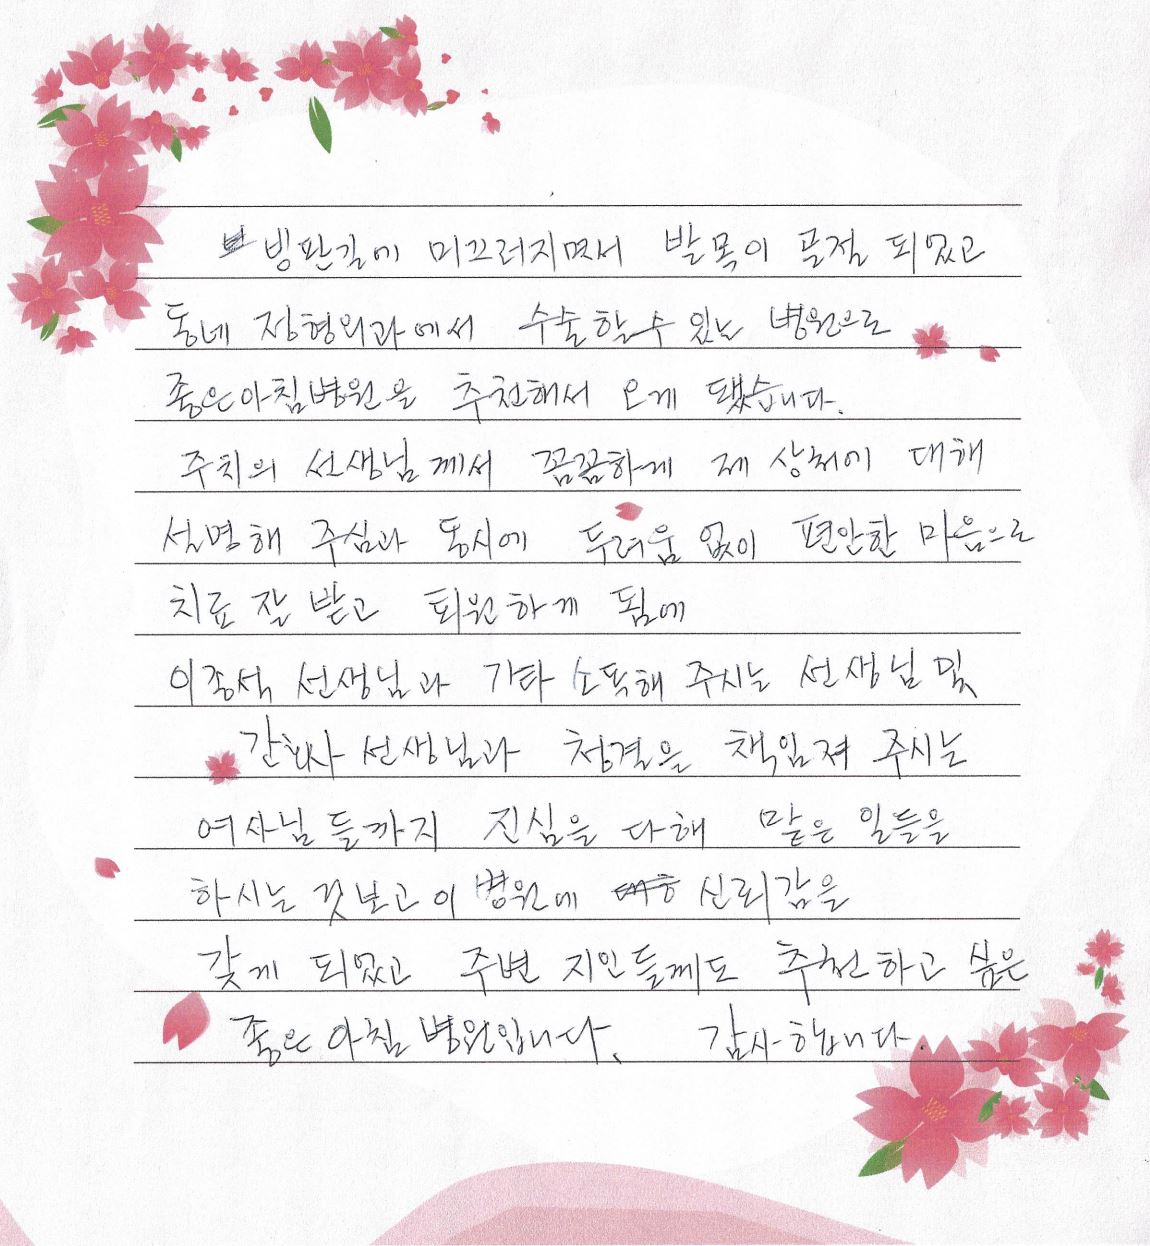 빙판길에 미끄러지면서 발목이 골절 되었고
동네 정형외과에서 수술할 수 있는 병원으로
좋은아침병원을 추천해서 오게 됐습니다.
주치의 선생님께서 꼼꼼하게 제 상처에 대해
설명해 주심과 동시에 두려움 없이 편안한 마음으로
치료 잘 받고 퇴원하게 됨에
이종석 선생님과 기타 소독해 주시는 선생님 및
간호사 선생님과 청결을 책임져 주시는
여사님들까지 진심을 다해 맡은 일들을
하시는 것 보고 이 병원에 신뢰감을
갖게 되었고 주변 지인들께도 추천하고 싶은
좋은 아침 병원입니다. 감사합니다.